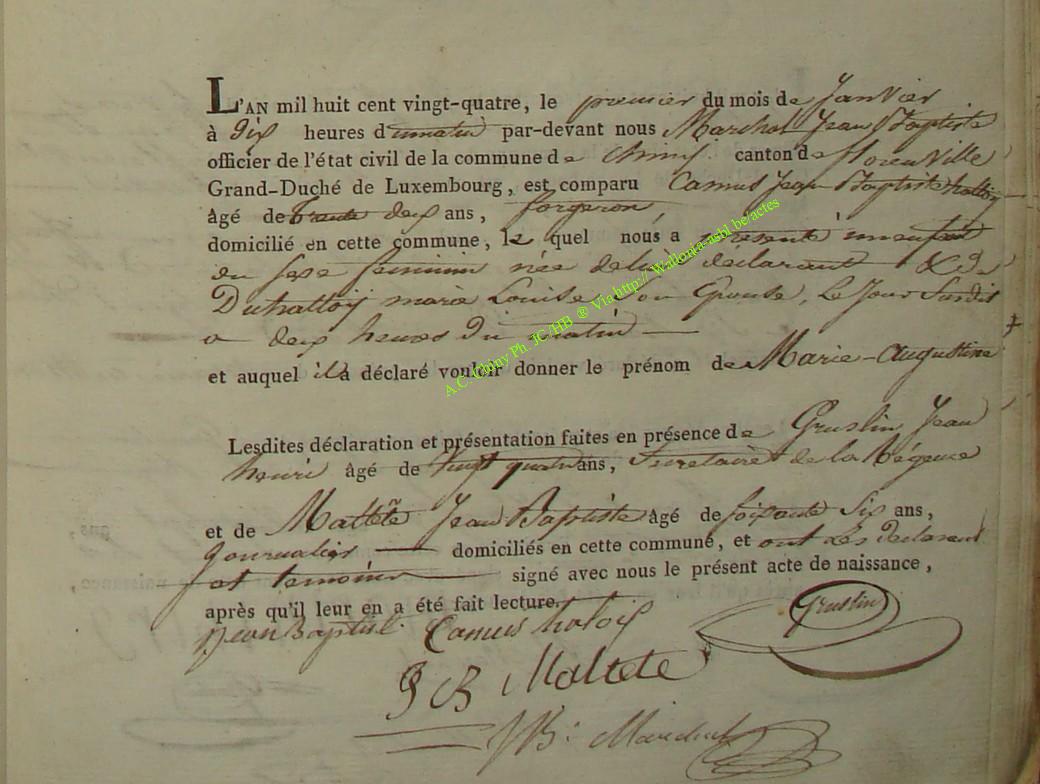 L'AN mil huit cent vingt-quatre, le premier du mois de Janvier
à dix heures du matin par-devant nous Marchal Jean Baptiste
officier de l'état civil de la commune de Chiny canton de florenville
Grand-Duché de Luxembourg, est comparu Camus Jean Baptiste hattoy
âgé de trente deux ans, forgeron,
domicilié en cette commune, le quel nous a présenté un enfant
du sexe feminin née de lui déclarant & de
Duhattoy marie Louise son Epouse, Le Jour Susdit
a deux heures du matin
et auquel il a déclaré vouloir donner le prénom de Marie-Augustine
Lesdites déclaration et présentation faites en présence de Gruslin Jean
henri âgé de Vingt quatre ans, Secretaire de la Régence
et de Maltête Jean Baptiste âgé de soixante Six ans,
Journalier domiciliés en cette commune, et ont Les déclarant
et temoins signé avec nous le présent acte de naissance,
après qu'il leur en a été fait lecture.
Jean Baptist Camus hatoy
Gruslin
J B Maltete
JB: Marchal
A.C. Chiny Ph. JC/HB ® Via http:// Wallonia-asbl.be/actes